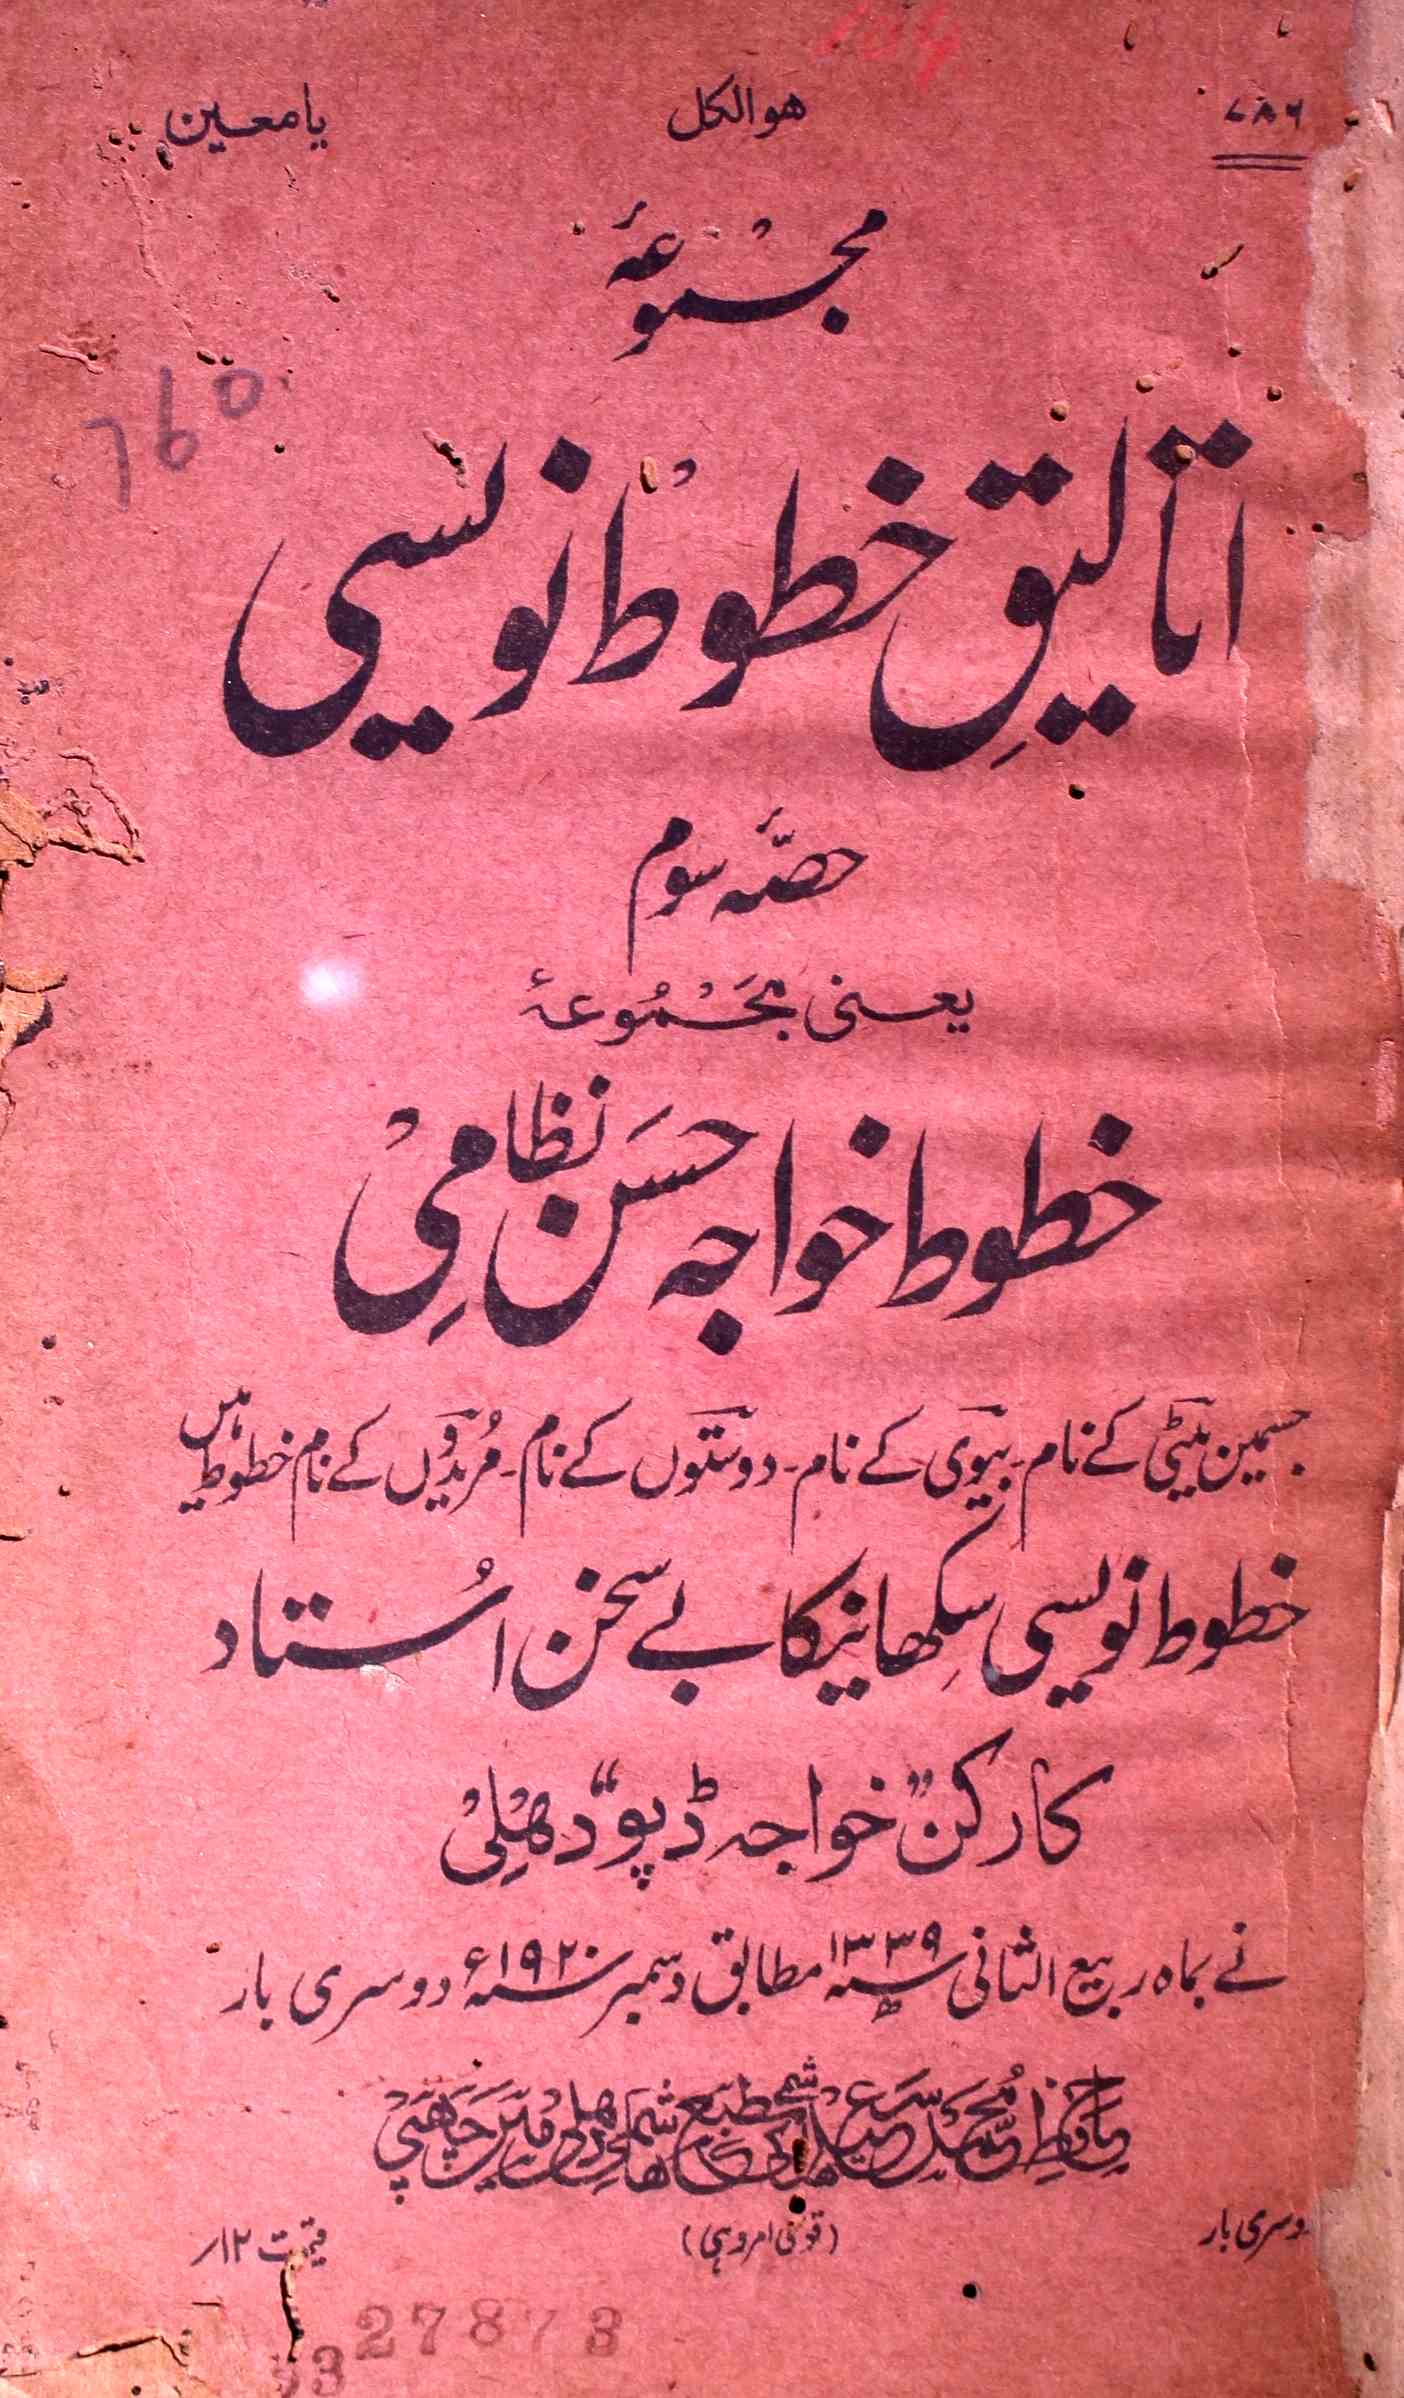 ۷۸۶ ھوالکل یامعین
مجموعۂ
اتالیقِ خطوط نویسی
حصّۂ سوم
یعنی مجموعۂ
خطوط خواجہ حسن نظامی
جسمیں بیٹی کے نام۔ بیوی کے نام۔ دوستوں کے نام۔ مریدوں کے نام خطوط ہیں
خطوط نویسی سکھانیکا بے سخن اُستاد
کارکن "خواجہ ڈپو" دھلی
نے بماہ ربیع الثانی ۱۳۳۹ھ مطابق دسمبر ۱۹۲۰ء دوسری بار
حافظ محمد سعید مطبع دھلی میں چھپی
دوسری بار (قوفی امروہی) قیمت ۱۲؍
760
27873
33